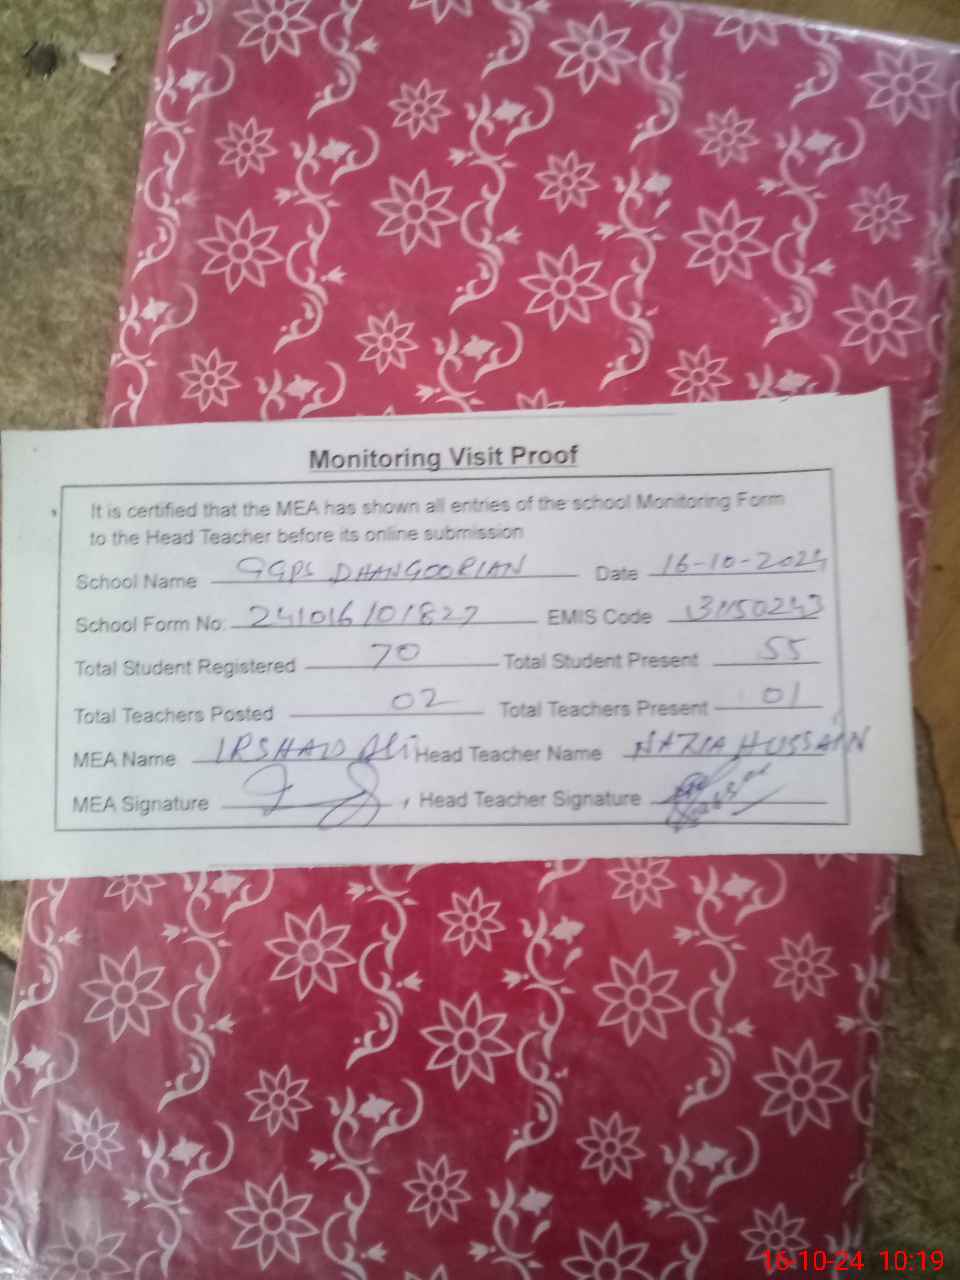 Monitoring Visit Proof
It is certified that the MEA has shown all entries of the school Monitoring Form
to the Head Teacher before its online submission
School Name GGPS DHANGOORIAN Date 16-10-2024
School Form No: 241016/01827 EMIS Code 31150243
Total Student Registered 70 Total Student Present 55
Total Teachers Posted 02 Total Teachers Present 01
MEA Name IRSHAD Ali Head Teacher Name NAZIA HUSSAIN
MEA Signature Head Teacher Signature
16-10-24 10:19